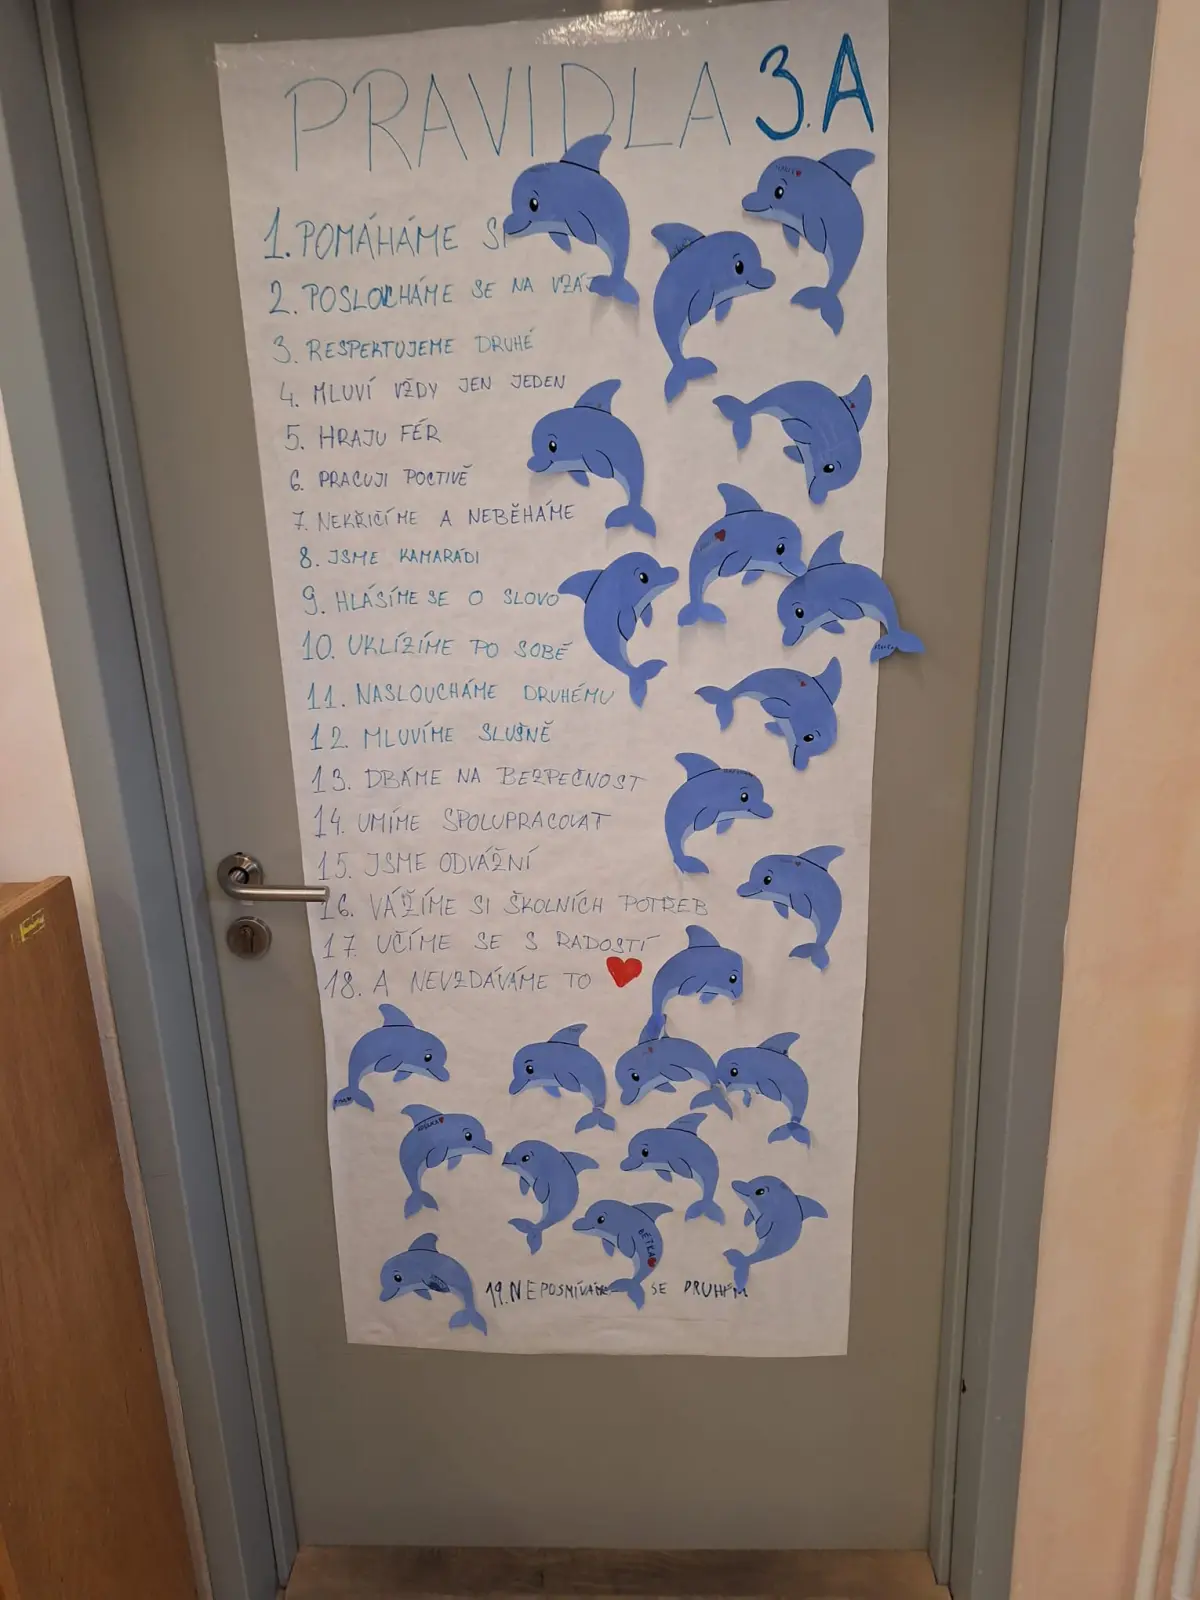 PRAVIDLA 3.A
1. POMÁHÁME SI
2. POSLOCHÁME SE NA VZÁJ
3. RESPEKTUJEME DRUHÉ
4. MLUVÍ VŽDY JEN JEDEN
5. HRAJU FÉR
6. PRACUJI POCTIVĚ
7. NEKŘIČÍME A NEBĚHÁME
8. JSME KAMARÁDI
9. HLÁSÍME SE O SLOVO
10. UKLÍZÍME PO SOBĚ
11. NASLOUCHÁME DRUHÉMU
12. MLUVÍME SLUŠNĚ
13. DBÁME NA BEZPEČNOST
14. UMÍME SPOLUPRACOVAT
15. JSME ODVÁŽNÍ
16. VÁŽÍME SI ŠKOLNÍCH POTŘEB
17. UČÍME SE S RADOSTÍ
18. A NEVZDÁVÁME TO
BĚTKA
19. NEPOSMÍVÁM SE DRUHÉM